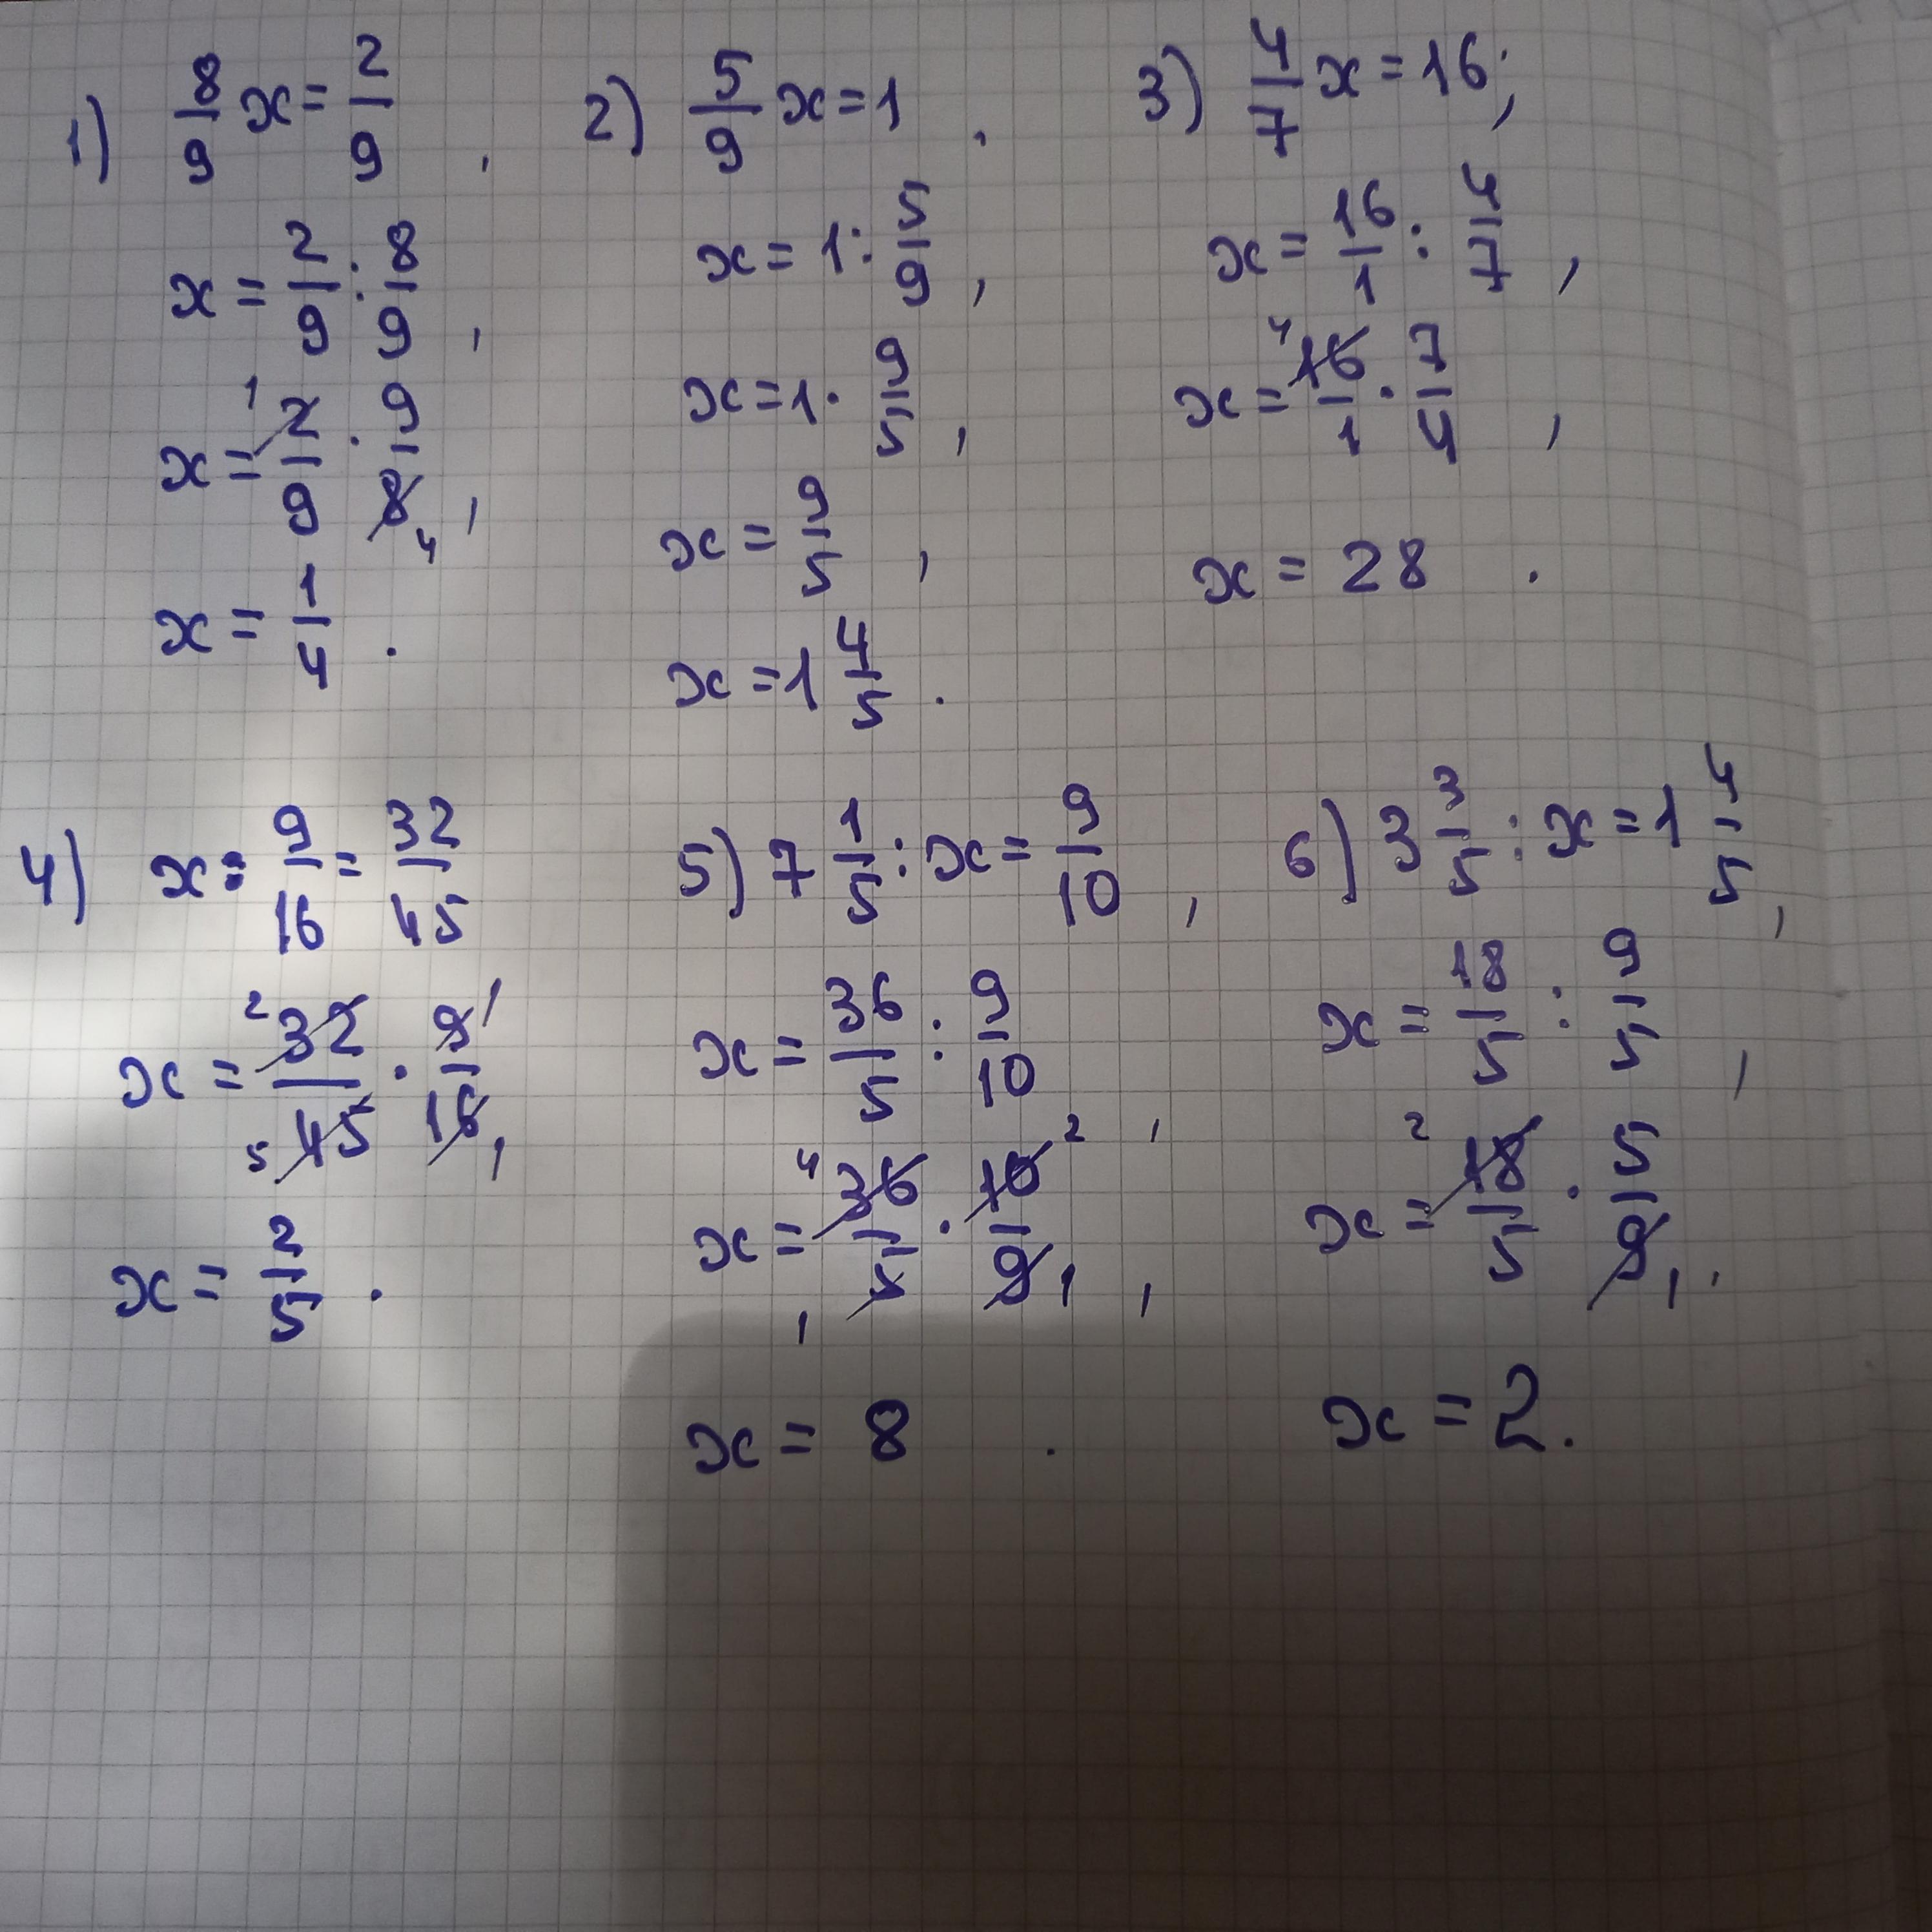 1) 8/9 x = 2/9 ,
x = 2/9 : 8/9 ,
x = ¹2/9 · 9/8₄ ,
x = 1/4 .
2) 5/9 x = 1 ,
x = 1 : 5/9 ,
x = 1 · 9/5 ,
x = 9/5 ,
x = 1 4/5 .
3) 4/7 x = 16 ;
x = 16/1 : 4/7 ,
x = ⁴16/1 · 7/4 ,
x = 28 .
4) x : 9/16 = 32/45
x = ²32/₅45 · 9¹/16₁
x = 2/5 .
5) 7 1/5 : x = 9/10 ,
x = 36/5 : 9/10 ,
x = ⁴36/₁5 · 10²/9₁ ,
x = 8 .
6) 3 3/5 : x = 1 4/5 ,
x = 18/5 : 9/5 ,
x = ²18/5 · 5/9₁ ,
x = 2.